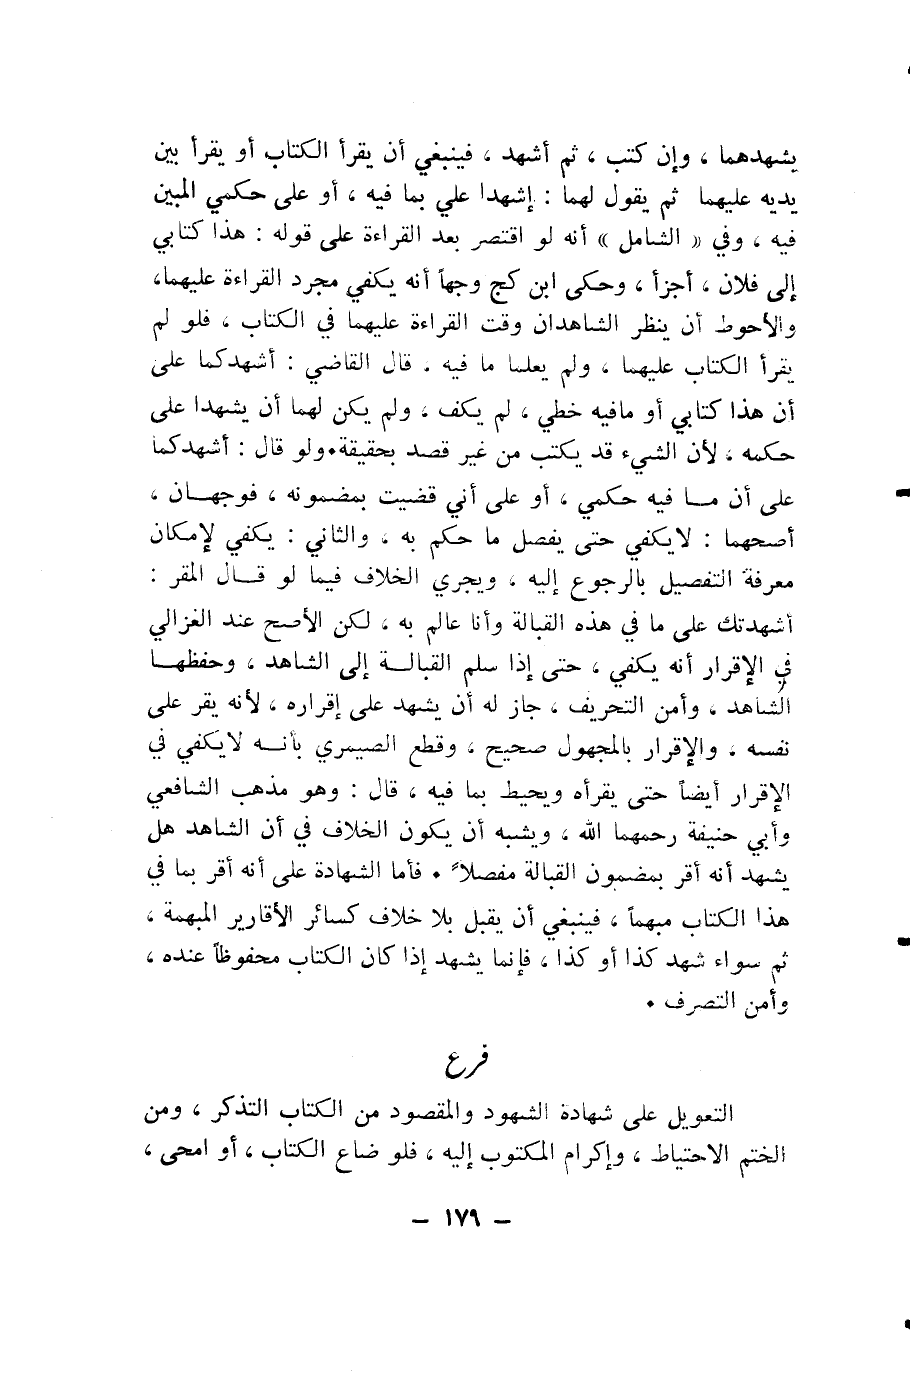 يشهدهما ، وإن كتب ، ثم أشهد ، فينبغي أن يقرأ الكتاب أو يقرأ بين
يديه عليهما ثم يقول لهما : إشهدا علي بما فيه ، أو على حكمي المبين
فيه ، وفي « الشامل » أنه لو اقتصر بعد القراءة على قوله : هذا كتابي
إلى فلان ، أجزأ ، وحكى ابن كج وجهاً أنه يكفي مجرد القراءة عليهما،
والأحوط أن ينظر الشاهدان وقت القراءة عليهما في الكتاب ، فلو لم
يقرأ الكتاب عليهما ، ولم يعلما ما فيه . قال القاضي : أشهدكما على
أن هذا كتابي أو مافيه خطي ، لم يكف ، ولم يكن لهما أن يشهدا على
حكمه ، لأن الشيء قد يكتب من غير قصد بحقيقة٠ولو قال : أشهدكما
على أن مـــا فيه حكمي ، أو على أني قضيت بمضمونه ، فوجهـــان ،
أصحهما : لايكفي حتى يفصل ما حكم به ، والثاني : يكفي لإمكان
معرفة التفصيل بالرجوع إليه ، ويجري الخلاف فيما لو قـــال المقر :
أشهدتك على ما في هذه القبالة وأنا عالم به ، لكن الأصح عند الغزالي
في الإقرار أنه يكفي ، حتى إذا سلم القبالـــة إلى الشاهد ، وحفظهـــا
الشاهد ، وأمن التحريف ، جاز له أن يشهد على إقراره ، لأنه يقر على
نفسه ، والإقرار بالمجهول صحيح ، وقطع الصيمري بأنـــه لايكفي في
الإقرار أيضاً حتى يقرأه ويحيط بما فيه ، قال : وهو مذهب الشافعي
وأبي حنيفة رحمهما الله ، ويشبه أن يكون الخلاف في أن الشاهد هل
يشهد أنه أقر بمضمون القبالة مفصلاً ٠ فأما الشهادة على أنه أقر بما في
هذا الكتاب مبهماً ، فينبغي أن يقبل بلا خلاف كسائر الأقارير المبهمة ،
ثم سواء شهد كذا أو كذا ، فإنما يشهد إذا كان الكتاب محفوظاً عنده ،
وأمن التصرف ٠
فرع
التعويل على شهادة الشهود والمقصود من الكتاب التذكر ، ومن
الختم الاحتياط ، وإكرام المكتوب إليه ، فلو ضاع الكتاب ، أو امحى ،
– ١٧٩ –